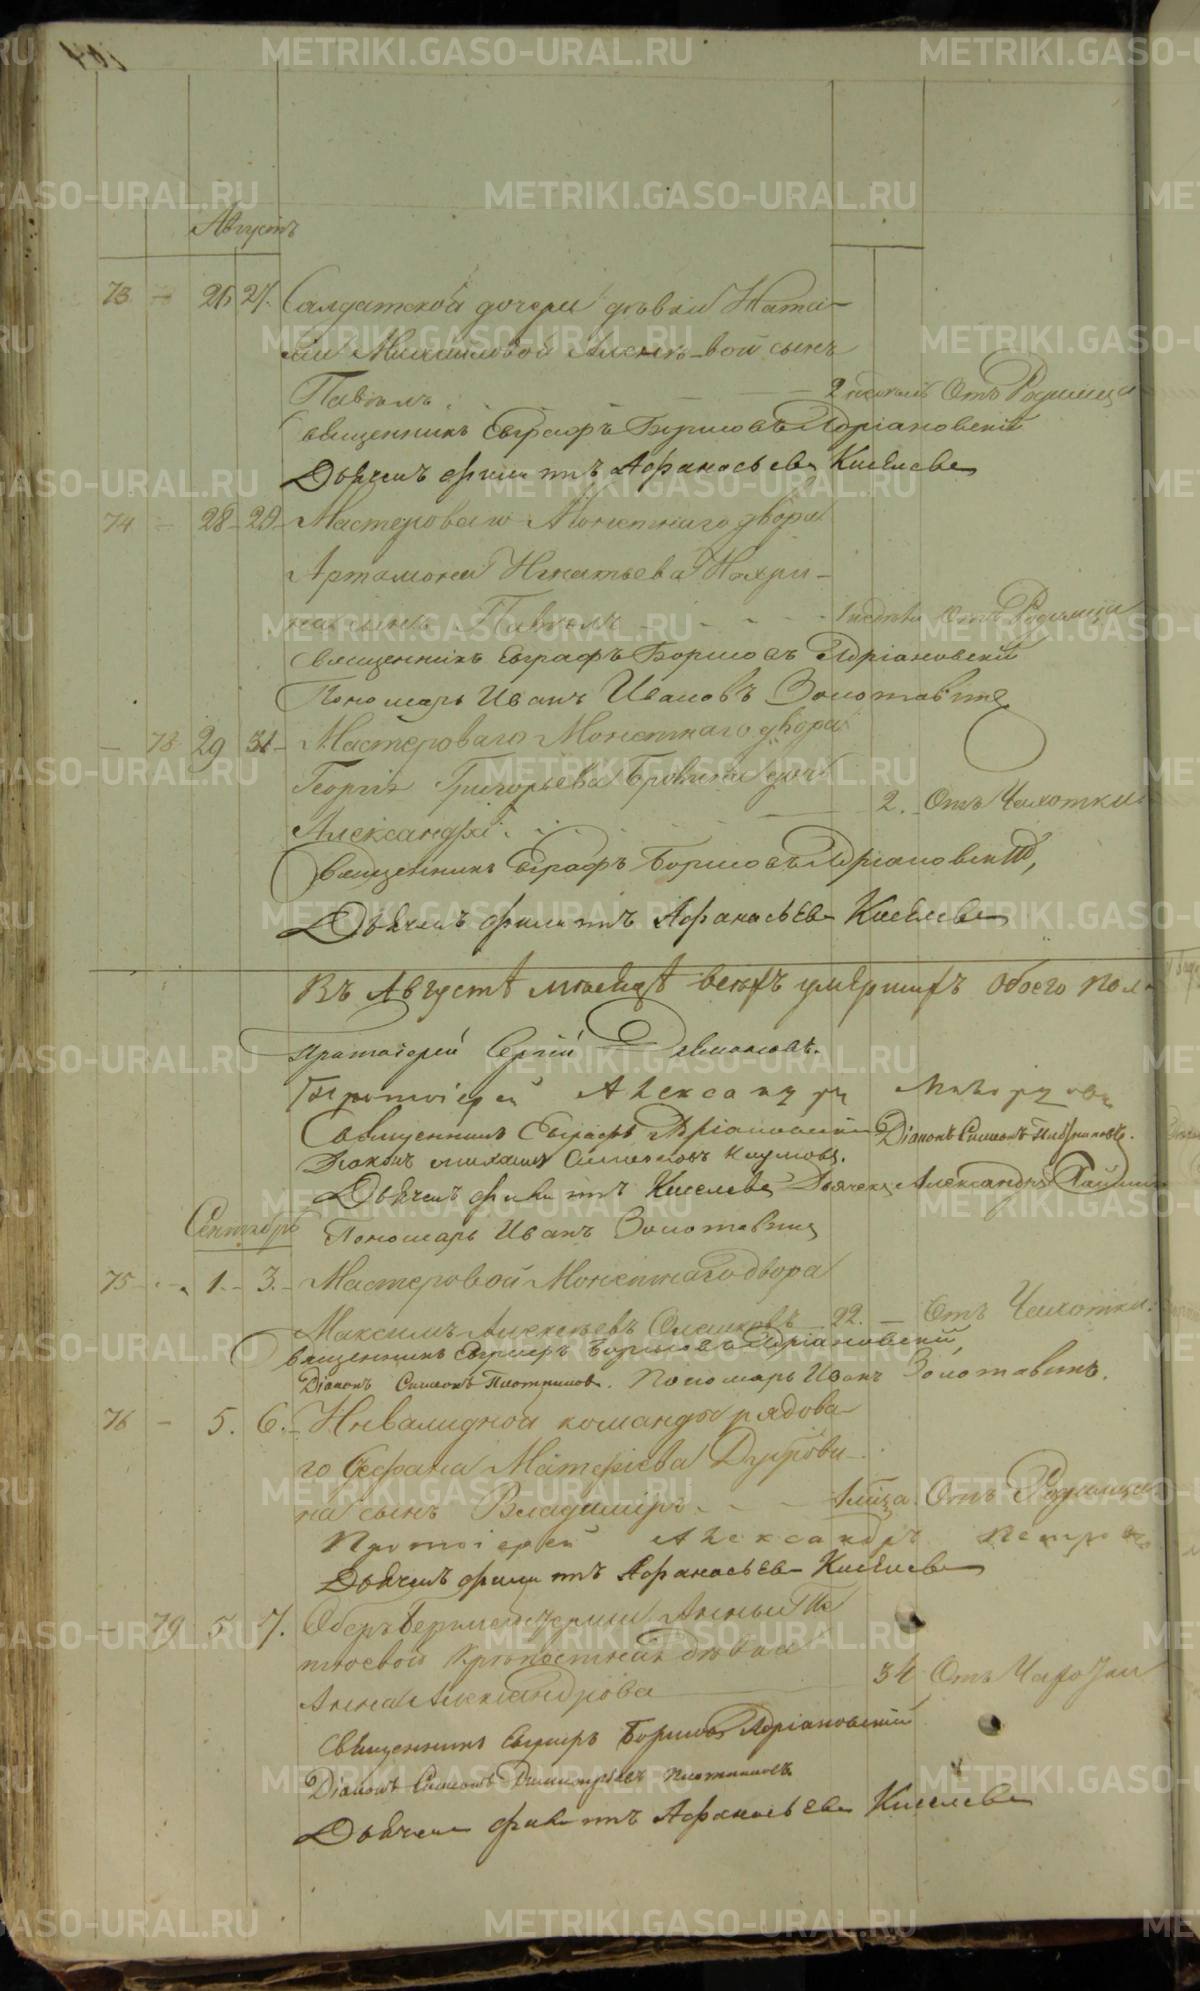 METRIKI.GASO-URAL.RU
Августъ
73 — 26 27. Салдатской дочери дѣвки Ната-
льи Михайловой сынъ
Павелъ. 2 недѣль Отъ Родимца
Священникъ Евграфъ Борисовъ Адріановскій
Дьячекъ Филиппъ Афанасьевъ Киселевъ
74 — 28 29 Мастероваго Монетнаго двора
Артамона Игнатьева
на сынъ Павелъ 1 недѣли Отъ Родимца
Священникъ Евграфъ Борисовъ Адріановскій
Пономарь Иванъ Ивановъ Золотавинъ
— 78 29 31 Мастероваго Монетнаго двора
Георгія Григорьева дочь
Александра. 2. Отъ Чахотки
Священникъ Евграфъ Борисовъ Адріановскій
Дьячекъ Филиппъ Афанасьевъ Киселевъ
Въ Августѣ мѣсяцѣ всѣхъ умершихъ обоего пол
Протоіерей Сергій
Протоіерей Александръ
Священникъ Евграфъ Адріановскій Діаконъ Симеонъ Плотниковъ.
Діаконъ Михаилъ Наумовъ.
Дьячекъ Филиппъ Киселевъ Дьячекъ Александръ
Пономарь Иванъ Золотавинъ
Сентябрь
75 — 1. 3. Мастеровой Монетнаго двора
Максимъ Алексѣевъ 22. — Отъ Чахотки.
Священникъ Евграфъ Борисовъ Адріановскій
Діаконъ Симеонъ Плотниковъ. Пономарь Иванъ Золотавинъ.
76 — 5. 6. Инвалидной команды рядова-
го Стефана Матфіева
на сынъ Владиміръ 1 мѣсяца Отъ Родимца
Протоіерей Александръ Петровъ
Дьячекъ Филиппъ Афанасьевъ Киселевъ
— 79 5 7. Оберъ Бергмейстерши Анны
крѣпостная дѣвка
Анна Александрова 34 Отъ Чахотки
Священникъ Евграфъ Борисовъ Адріановскій
Діаконъ Симеонъ Димитріевъ Плотниковъ
Дьячекъ Филиппъ Афанасьевъ Киселевъ